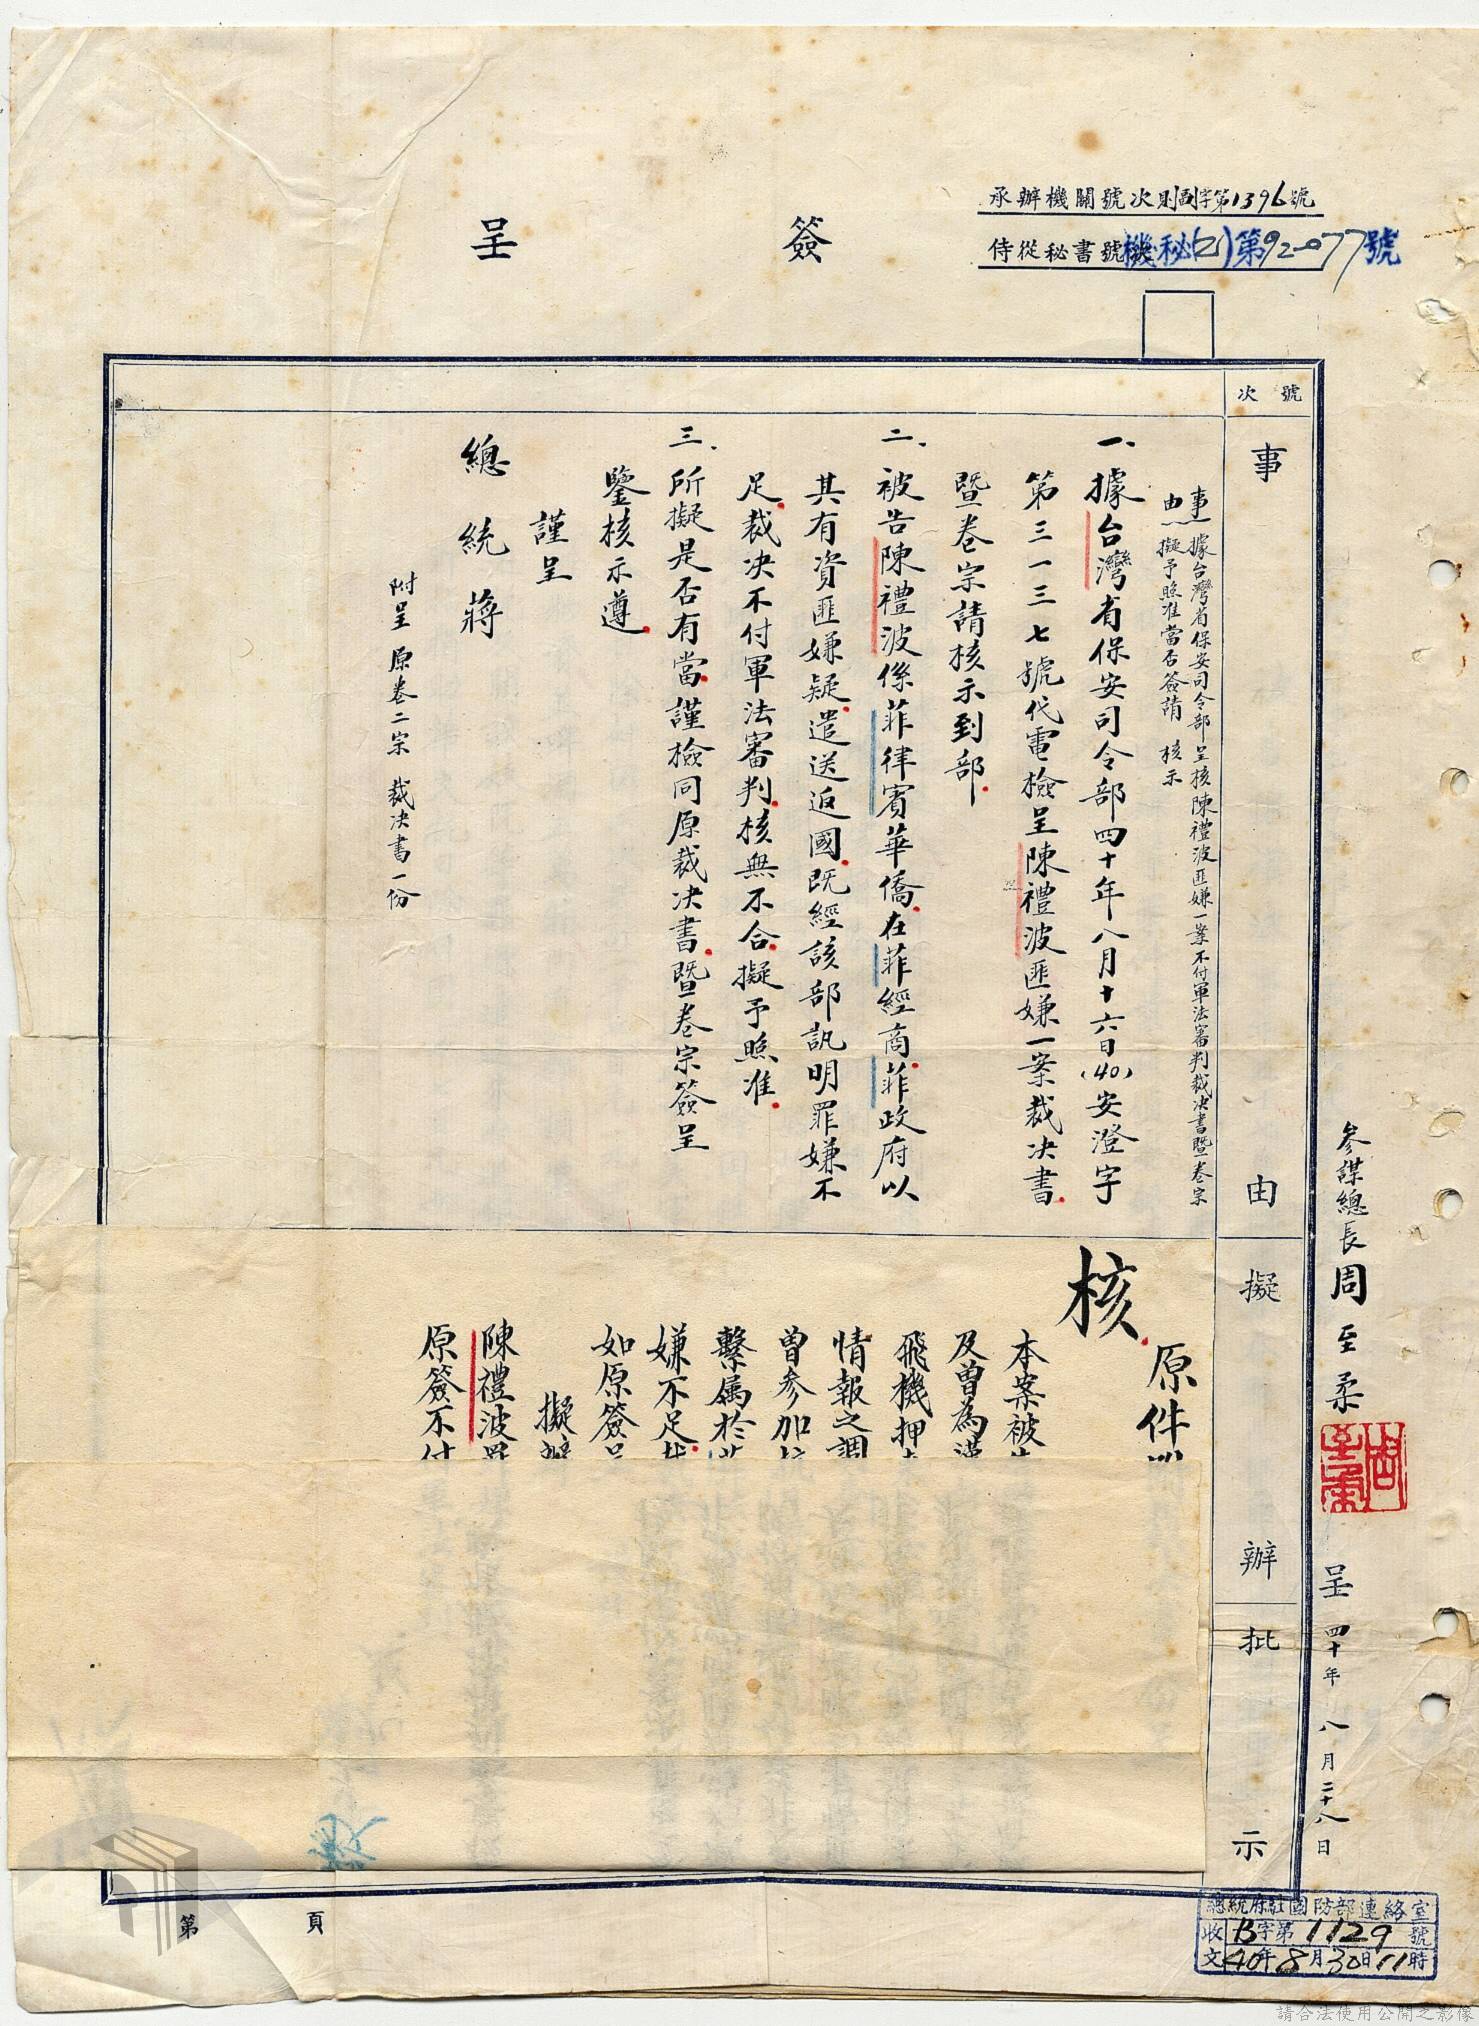 簽呈
承辦機關號次則副字第1396號
侍從秘書號次機秘(乙)第92-077號
號次
事由
擬辦
批示
事由:據台灣省保安司令部呈核陳禮波匪嫌一案不付軍法審判裁決書暨卷宗
擬予照准當否簽請 核示
一、據台灣省保安司令部四十年八月十六日(40)安澄字
第三一三七號代電檢呈陳禮波匪嫌一案裁決書
暨卷宗請核示到部
二、被告陳禮波係菲律賓華僑在菲經商菲政府以
其有資匪嫌疑遣送返國既經該部訊明罪嫌不
足裁決不付軍法審判核無不合擬予照准
三、所擬是否有當謹檢同原裁決書暨卷宗簽呈
鑒核示遵
謹呈
總統蔣
附呈原卷二宗 裁決書一份
核
原件
本案被
及曾為漢
飛機押
情報之調
曾參加
繫屬於
嫌不足
如原簽
擬辦
陳禮波
原簽不付
參謀總長周至柔
周至柔
呈 四十年八月二十八日
第 頁
總統府駐國防部連絡室
收 B字第1129號
文 40年8月30日11時
請合法使用公開之影像